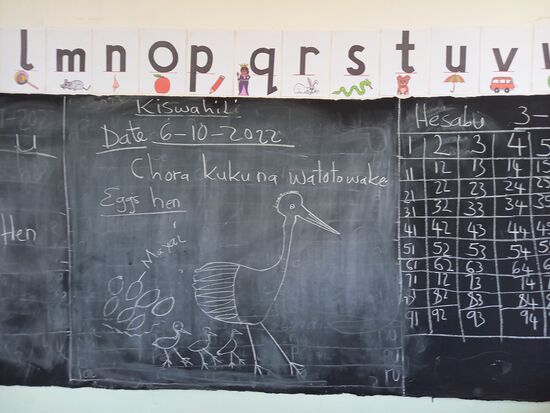 l m n o p q r s t u v
u
Hen
Kiswahili
Date 6-10-2022
Chora kuku na watoto wake
Eggs hen
Mayai
ru
Hesabu 3-
1 2 3 4 5
11 12 13 14 15
21 22 23 24 25
31 32 33 34 35
41 42 43 44 45
51 52 53 54 5
61 62 63 64 6
71 72 73 74
82 83 84
91 92 93 94